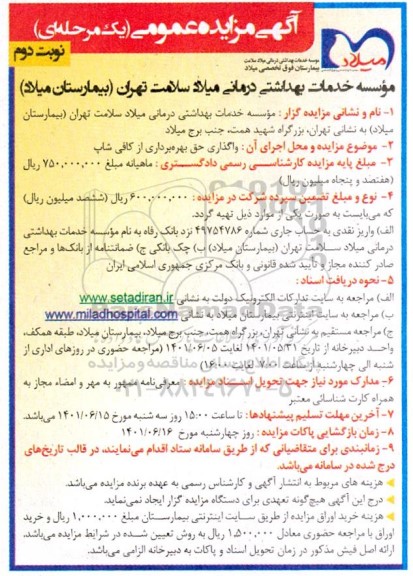 آگهی مزایده عمومی (یک مرحله‌ای)
نوبت دوم
میلاد
موسسه خدمات بهداشتی درمانی میلاد سلامت
بیمارستان فوق تخصصی میلاد
مؤسسه خدمات بهداشتی درمانی میلاد سلامت تهران (بیمارستان میلاد)
۱- نام و نشانی مزایده گزار : مؤسسه خدمات بهداشتی درمانی میلاد سلامت تهران (بیمارستان
میلاد) به نشانی تهران، بزرگراه شهید همت، جنب برج میلاد
۲- موضوع مزایده و محل اجرای آن : واگذاری حق بهره‌برداری از کافی شاپ
۳- مبلغ پایه مزایده کارشناسی رسمی دادگستری : ماهیانه مبلغ ۷۵۰.۰۰۰.۰۰۰ ریال
(هفتصد و پنجاه میلیون ریال)
۴- نوع و مبلغ تضمین سپرده شرکت در مزایده : ۶۰۰.۰۰۰.۰۰۰ ریال (ششصد میلیون ریال)
که می‌بایست به صورت یکی از موارد ذیل تهیه گردد.
الف) واریز نقدی به حساب جاری شماره ۴۹۷۵۴۷۸۶ نزد بانک رفاه به نام مؤسسه خدمات بهداشتی
درمانی میلاد سلامت تهران (بیمارستان میلاد) ب) چک بانکی ج) ضمانتنامه از بانک‌ها و مراجع
صادر کننده مجاز و تأیید شده قانونی و بانک مرکزی جمهوری اسلامی ایران
۵- نحوه دریافت اسناد :
الف) مراجعه به سایت تدارکات الکترونیک دولت به نشانی www.setadiran.ir
ب) مراجعه به سایت اینترنتی بیمارستان میلاد به نشانی www.miladhospital.com
ج) مراجعه مستقیم به نشانی تهران، بزرگراه همت، جنب برج میلاد، بیمارستان میلاد، طبقه همکف،
واحد دبیرخانه از تاریخ ۱۴۰۱/۰۵/۳۱ لغایت ۱۴۰۱/۰۶/۰۵ (مراجعه حضوری در روزهای اداری از
شنبه الی چهارشنبه از ساعت ۷:۰۰ لغایت ۱۶:۰۰)
۶- مدارک مورد نیاز جهت تحویل اسناد مزایده : معرفی‌نامه ممهور به مهر و امضاء مجاز به
همراه کارت شناسائی معتبر
۷- آخرین مهلت تسلیم پیشنهادها : تا ساعت ۱۵:۰۰ روز سه شنبه مورخ ۱۴۰۱/۰۶/۱۵ می‌باشد.
۸- زمان بازگشایی پاکات مزایده : روز چهارشنبه مورخ ۱۴۰۱/۰۶/۱۶
۹- زمانبندی برای متقاضیانی که از طریق سامانه ستاد اقدام می‌نمایند، در قالب تاریخ‌های
درج شده در سامانه می‌باشد.
هزینه های مربوط به انتشار آگهی و کارشناس رسمی به عهده برنده مزایده می‌باشد.
درج این آگهی هیچ‌گونه تعهدی برای دستگاه مزایده گزار ایجاد نمی‌نماید.
هزینه خرید اوراق مزایده از طریق سایت اینترنتی بیمارستان مبلغ ۱.۰۰۰.۰۰۰ ریال و خرید
اوراق با مراجعه حضوری معادل ۱.۵۰۰.۰۰۰ ریال به روش تعیین شده در شرایط مزایده می‌باشد.
ارائه اصل فیش مذکور در زمان تحویل اسناد و پاکات به دبیرخانه الزامی می‌باشد.